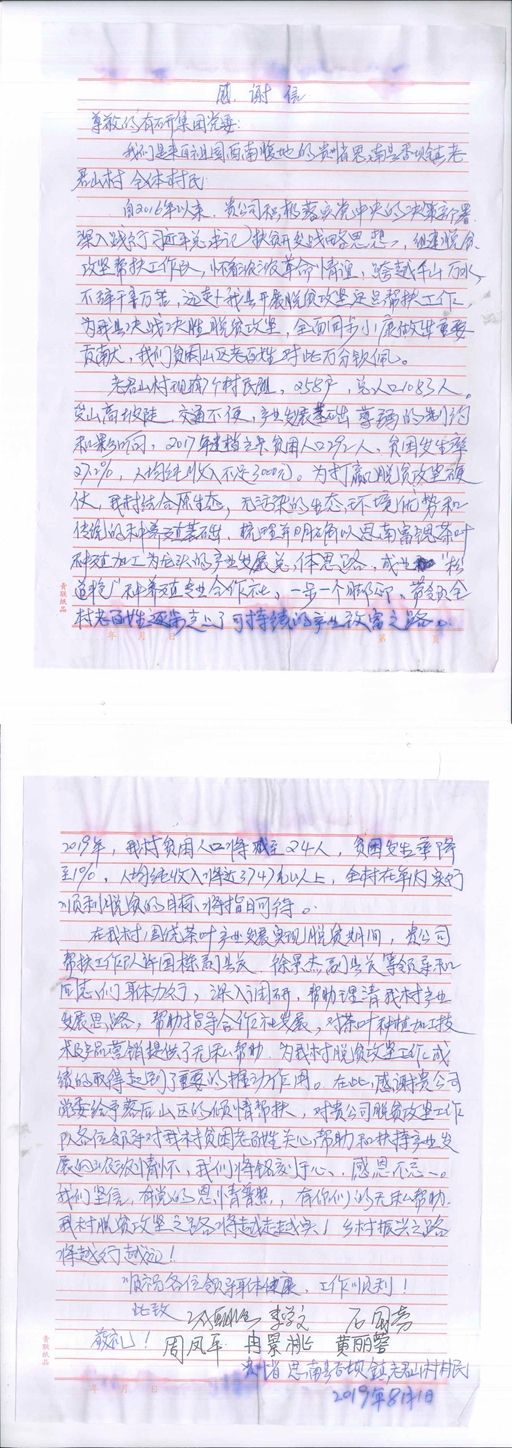 感谢信
尊敬的有研集团党委:
我们是来自祖国西南腹地的贵州省思南县香坝镇老
君山村全体村民
自2016年以来,贵公司积极落实党中央的决策部署
深入践行习近平总书记扶贫开发战略思想,组建脱贫
攻坚帮扶工作队,怀着浓浓革命情谊,跨越千山万水,
不辞千辛万苦,远赴我县开展脱贫攻坚定点帮扶工作,
为我县决战决胜脱贫攻坚,全面同步小康做出重要
贡献,我们贫困山区老百姓对此万分钦佩。
老君山村现有7个村民组,258户,总人口1083人。
山高坡陡,交通不便,产业发展基础薄弱的制约
和影响,2017年建档立卡贫困人口292人,贫困发生率
27.2%,人均纯收入不足3000元。为打赢脱贫攻坚硬
仗,我村结合原生态,无污染的生态环境优势和
传统的种养殖基础,梳理并明确以思南富锶茶叶
种植加工为龙头的产业发展总体思路,成立
种养殖专业合作社,一步一个脚印,带领全
村老百姓逐步走上了可持续的产业致富之路。
青联纸品
年 月 日 第 页
2019年,我村贫困人口将减至24人,贫困发生率降
至1%,人均纯收入将近3747元以上,全村在年内实现
顺利脱贫的目标将指日可待。
在我村围绕茶叶产业发展实现脱贫期间,贵公司
帮扶工作队许国栋副县长、徐景杰副县长等领导和
同志们身体力行,深入调研,帮助理清我村产业
发展思路,帮助指导合作社发展,对茶叶种植加工技
术及产品营销提供了无私帮助,为我村脱贫攻坚工作成
绩的取得起到了重要的推动作用。在此,感谢贵公司
党委给予落后山区的倾情帮扶,对贵公司脱贫攻坚工作
队各位领导对我村贫困老百姓关心帮助和扶持产业发
展的浓浓情怀,我们将铭刻于心、感恩不忘。
我们坚信,有党的恩情普照,有你们的无私帮助,
我村脱贫攻坚之路将越走越实,乡村振兴之路
将越行越远!
顺祝各位领导身体健康,工作顺利!
此致 李学文
敬礼! 周凤军 冉景洮 黄丽蓉
贵州省思南县香坝镇老君山村村民
2019年8月1日
青联纸品
年 月 日